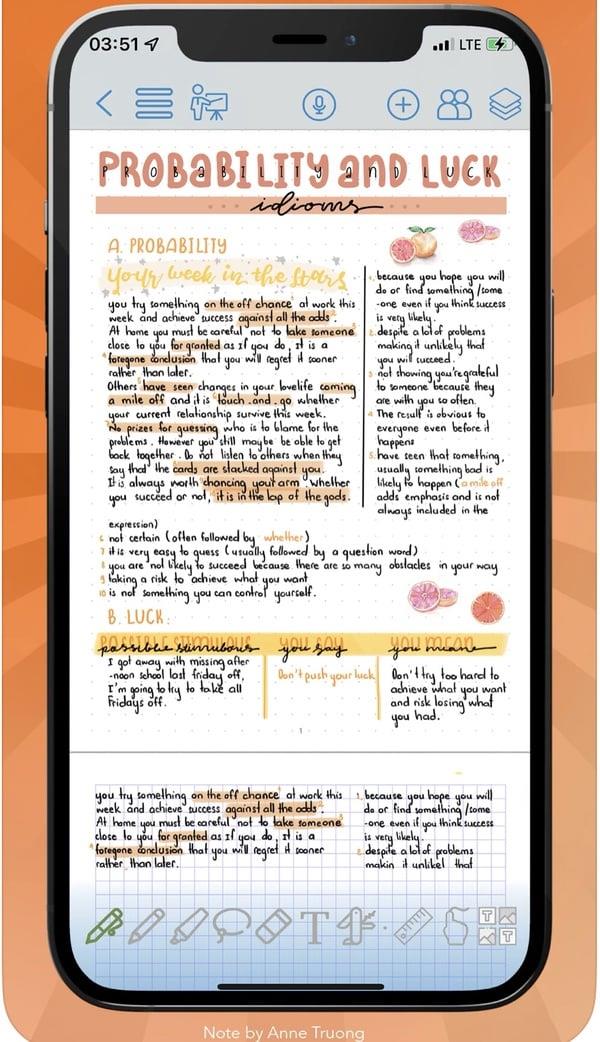 03:51
LTE
PROBABILITY and LUCK
PROBABILITY and LUCK
idioms
A. PROBABILITY
Your week in the stars
you try something on the off chance¹ at work this
week and achieve success against all the odds².
At home you must be careful not to take someone³
close to you for granted as If you do, It is a
⁴foregone conclusion that you will regret it sooner
rather than later.
Others ⁵have seen changes in your lovelife coming
a mile off and it is ⁶touch.and.go whether
your current relationship survive this week.
⁷No prizes for guessing who is to blame for the
problems. However you still maybe be able to get
back together. Do not listen to others when they
say that the ⁸cards are stacked against you.
It is always worth ⁹chancing your arm. Whether
you succeed or not, ¹⁰it is in the lap of the gods.
1. because you hope you will
do or find something /some
-one even if you think success
is very likely.
2. despite a lot of problems
making it unlikely that
you will succeed.
3 not showing you'regrateful
to someone because they
are with you so often.
4 The result is obvious to
everyone even before it
happens
5. have seen that something,
usually something bad is
likely to happen (a mile off
adds emphasis and is not
always included in the
expression)
6 not certain (often followed by whether)
7 it is very easy to guess (usually followed by a question word)
8 you are not likely to succeed because there are so many obstacles in your way
9 taking a risk to achieve what you want
10 is not something you can control yourself.
B. LUCK:
POSSIBLE STIMULOUS YOU SAY YOU MEAN
possible stimulous you say you means
I got away with missing after
-noon school last friday off,
I'm going to try to take all
Fridays off.
Don't push your luck
Don't try too hard to
achieve what you want
and risk losing what
you had.
1
you try something on the off chance¹ at work this
week and achieve success against all the odds².
At home you must be careful not to take someone³
close to you for granted as If you do, It is a
⁴foregone conclusion that you will regret it sooner
rather than later.
1. because you hope you will
do or find something /some
-one even if you think success
is very likely.
2. despite a lot of problems
makin it unlikel that
T
T
T
Note by Anne Truong